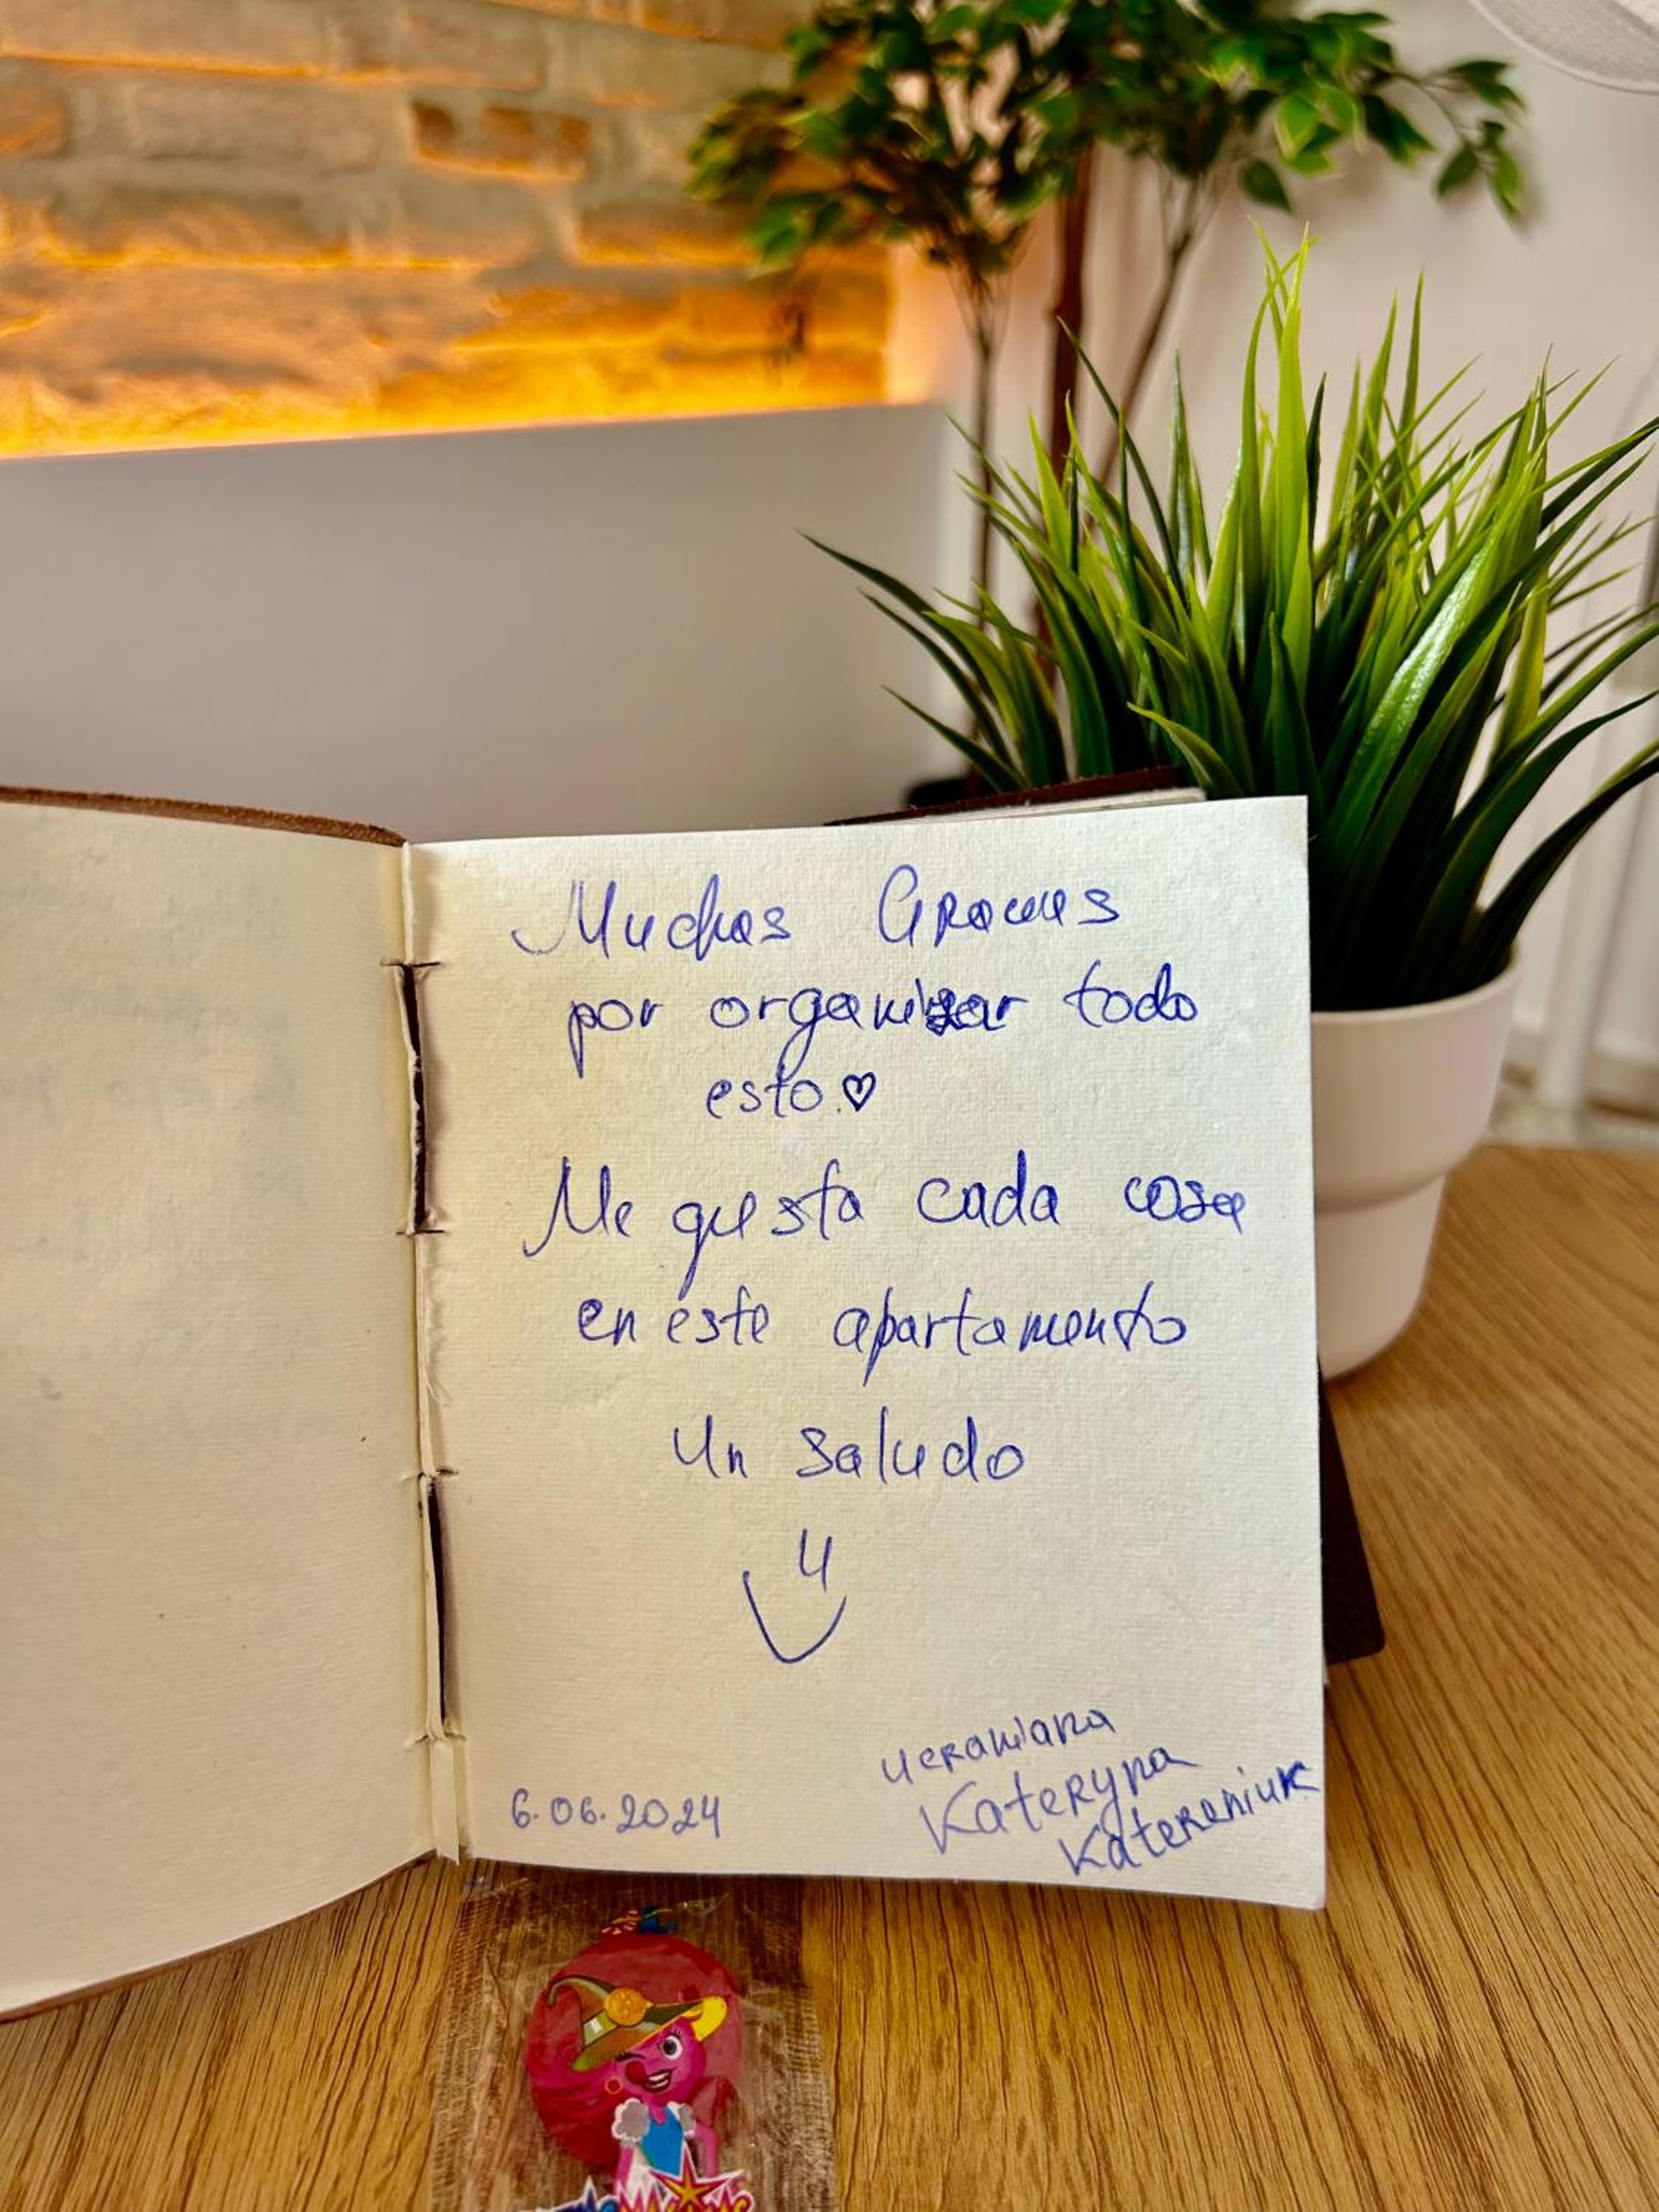 Muchas Gracias
por organizar todo
esto. ♡
Me gusta cada cosa
en este apartamento
Un saludo
6.06.2024
ucraniana
Kateryna
Katereniuk